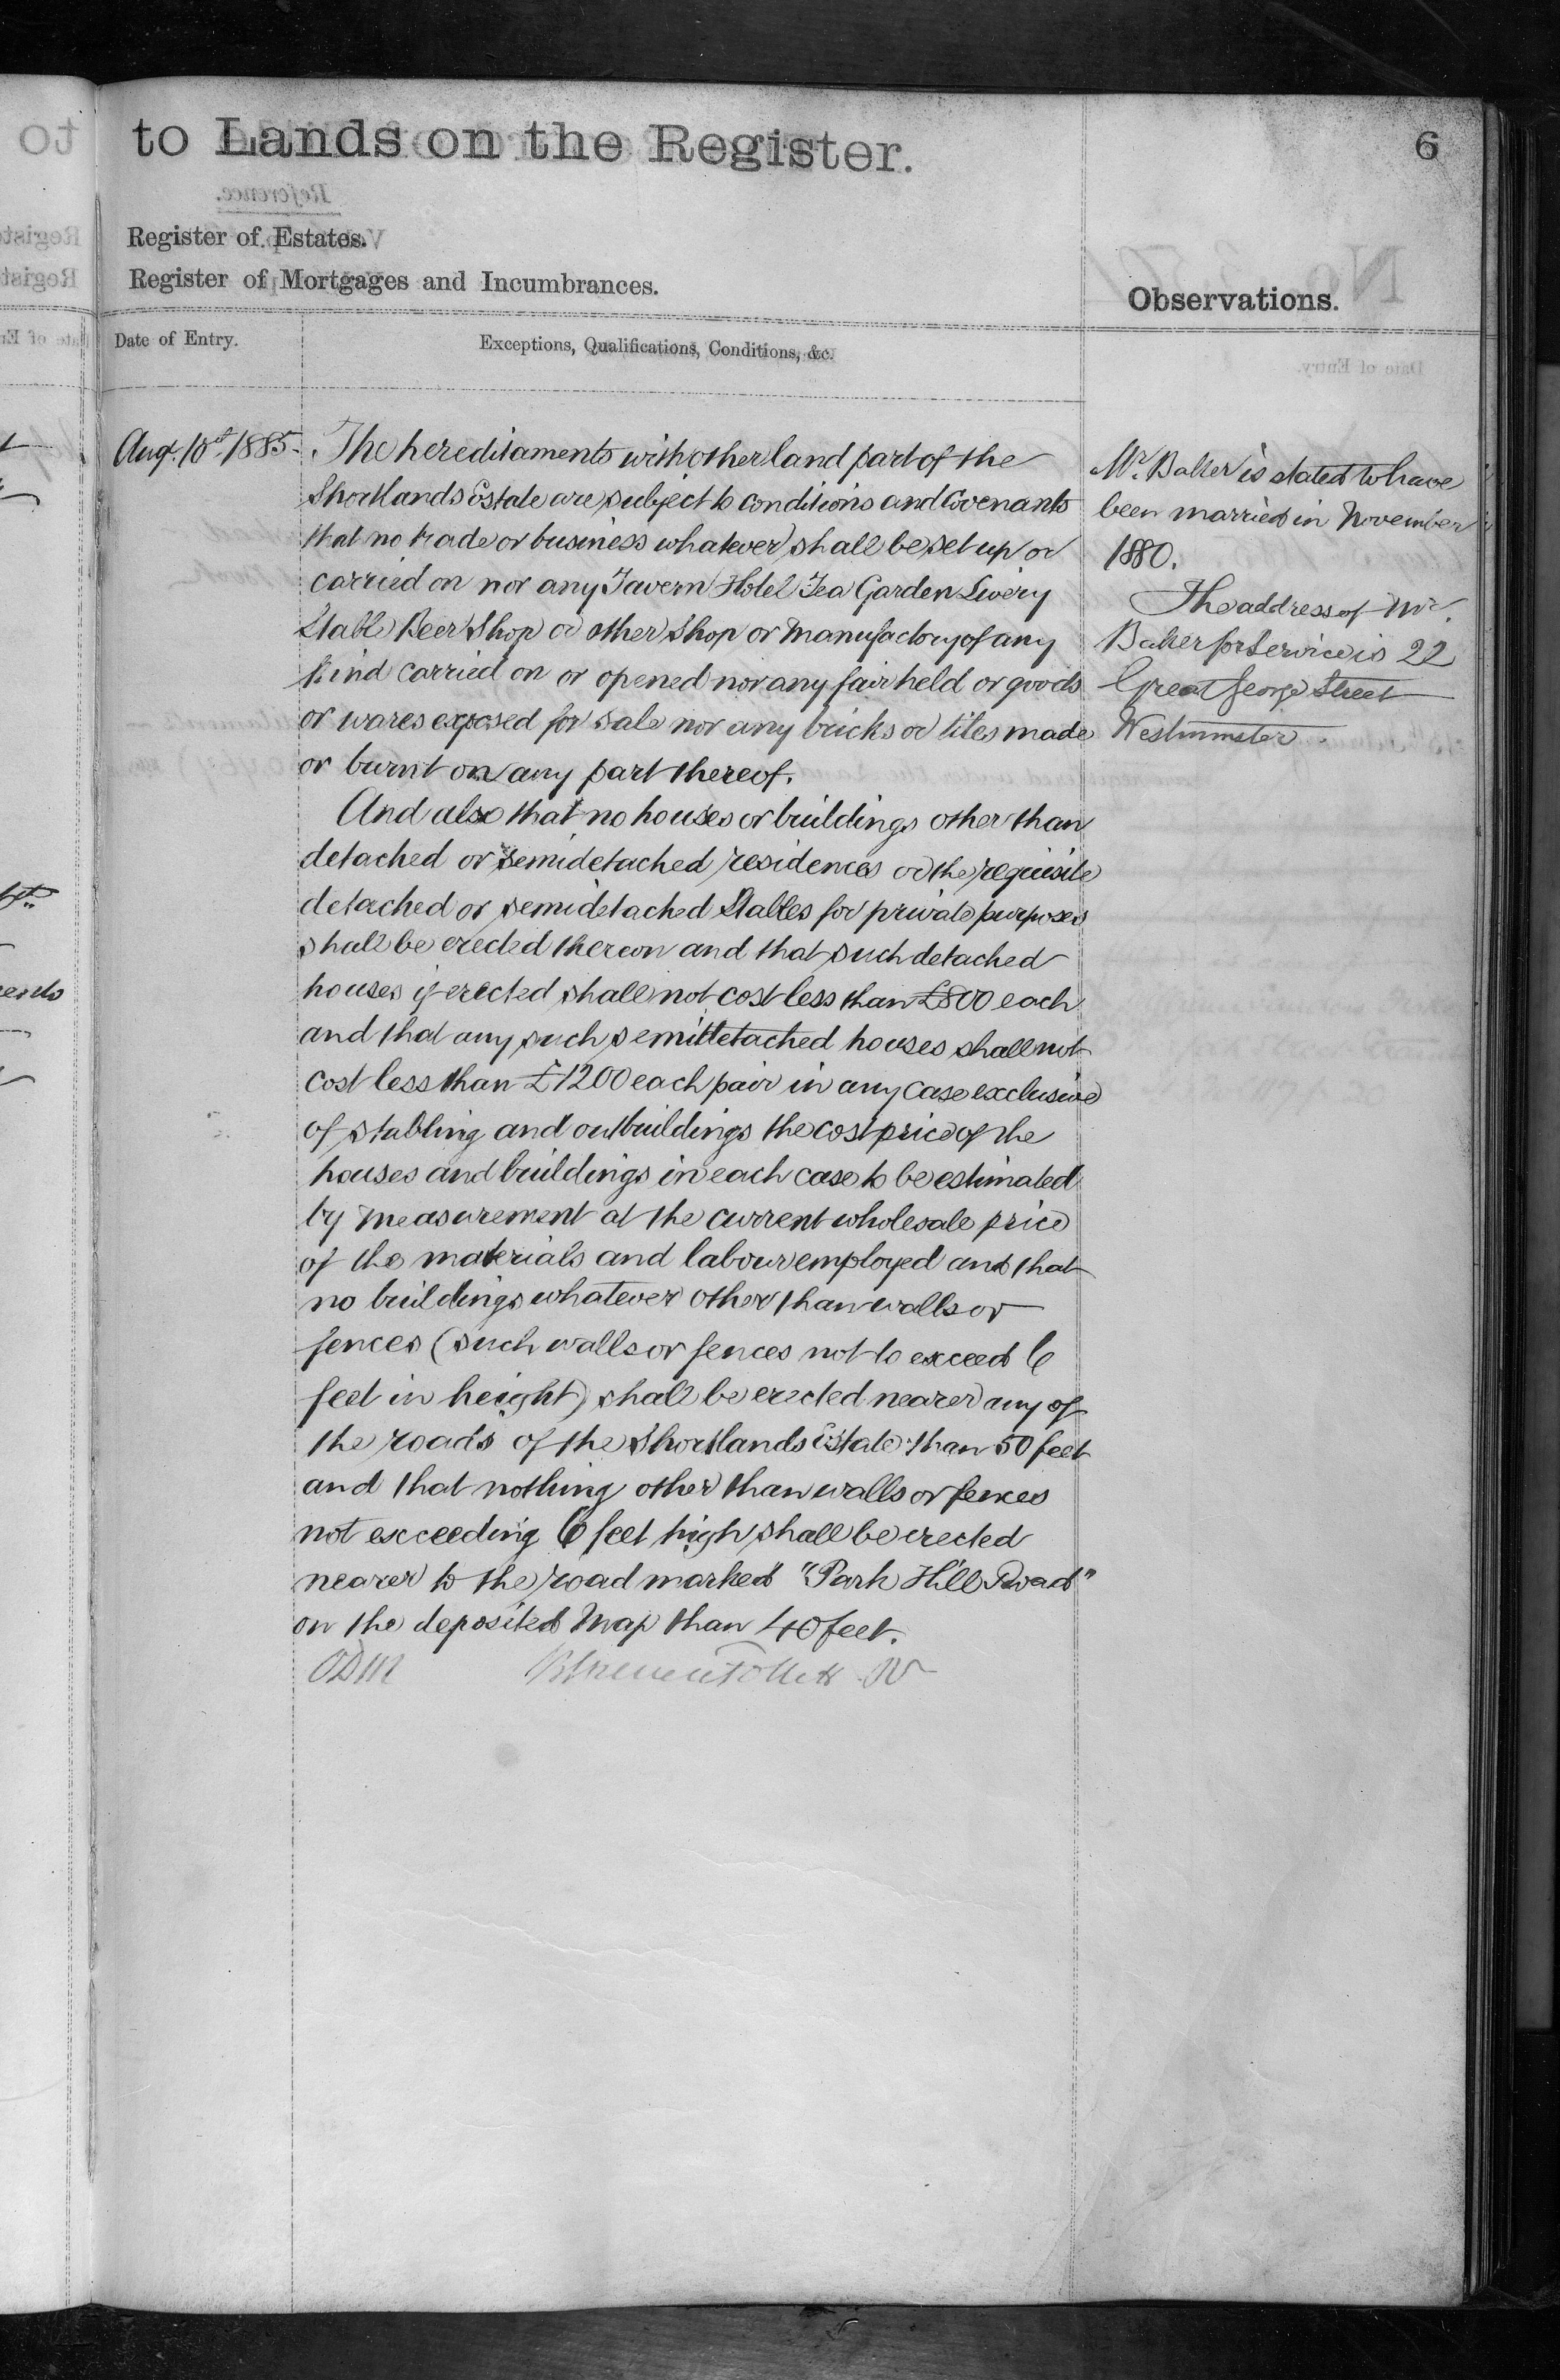 to Lands on the Register.
6
Register of Estates.
Register of Mortgages and Incumbrances.
Observations.
Date of Entry.
Exceptions, Qualifications, Conditions, &c.
Aug. 1885. The hereditaments with other land part of the
Shortlands Estate are subject to conditions and Covenants
that no trade or business whatever shall be set up or
carried on nor any Tavern Hotel Tea Garden Livery
Stable Beer Shop or other Shop or Manufactory of any
kind carried on or opened nor any fair held or goods
or wares exposed for sale nor any bricks or tiles made
or burnt on any part thereof.
And also that no houses or buildings other than
detached or semidetached residences or the requisite
detached or semidetached Stables for private purposes
shall be erected thereon and that such detached
houses if erected shall not cost less than £800 each
and that any such semidetached houses shall not
cost less than £1200 each pair in any case exclusive
of stabling and outbuildings the cost price of the
houses and buildings in each case to be estimated
by measurement at the current wholesale price
of the materials and labour employed and that
no buildings whatever other than walls or
fences (such walls or fences not to exceed 6
feet in height) shall be erected nearer any of
the roads of the Shortlands Estate than 50 feet
and that nothing other than walls or fences
not exceeding 6 feet high shall be erected
nearer to the road marked "Park Hill Road"
on the deposited Map than 40 feet.
ODM
Mr. Baker is stated to have
been married in November
1880.
The address of Mr.
Baker for Service is 22
Great George Street
Westminster.